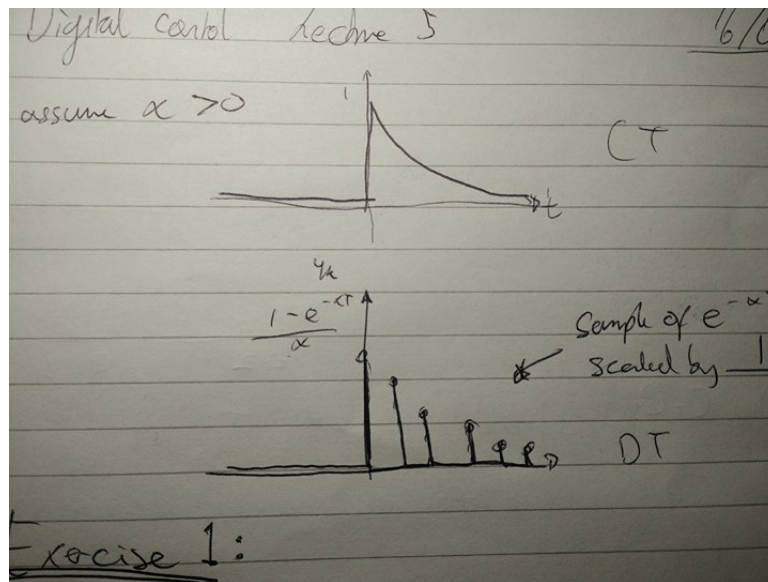 Digital contol Lecture 5 6/
assume α >0
1
CT
t
yk
1 - e^-αT
α
Sample of e^-α
scaled by 1
DT
Exercise 1: